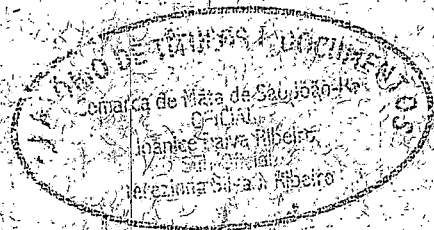 DE TÍTULOS E DOCUMENTOS
Comarca de Mata de São João-
OFICIAL
Joanice Paiva Ribeiro
Oficial
Silva Ribeiro